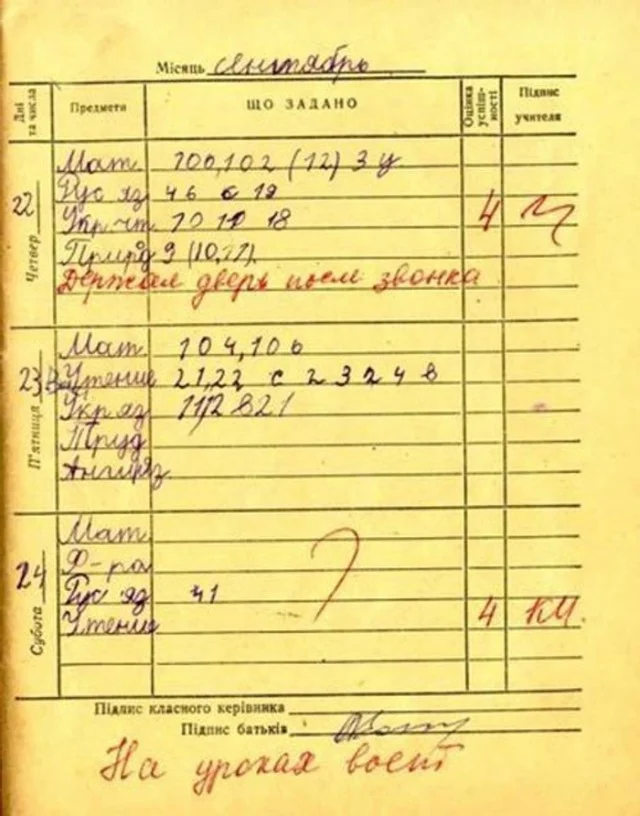 Місяць сентябрь
Дні та числа Предмети ЩО ЗАДАНО Оцінка успіш-ності Підпис учителя
Четвер 22
Мат. 100,102 (12) 3 у
Рус яз 46 с 19
Укр. чт. 10 11 18
Прирд 9 (10,11).
4
Держал дверь после звонка
П'ятниця 23
Мат. 104,106
Чтение 21,22 с 23 24 в
Укр яз 112 821
Труд
Англ яз.
Субота 24
Мат.
Ф-ра
Рус яз 41
Чтение
?
4 КМ.
Підпис класного керівника
Підпис батьків
На уроках воет